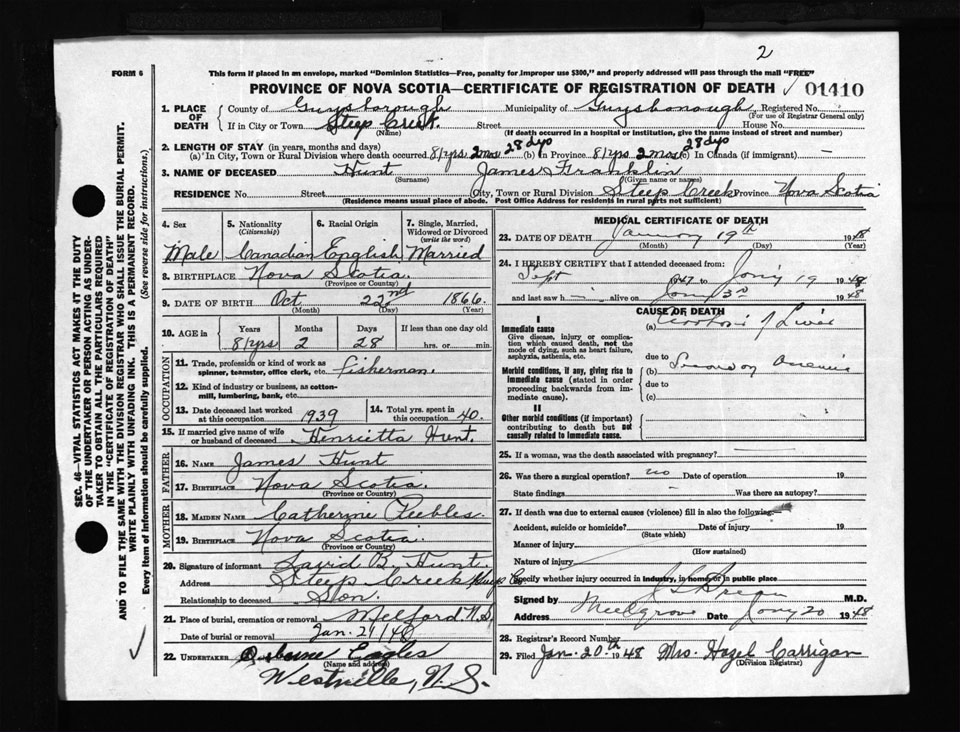 2
FORM 6
This form if placed in an envelope, marked "Dominion Statistics—Free, penalty for improper use $300," and properly addressed will pass through the mail "FREE"
PROVINCE OF NOVA SCOTIA—CERTIFICATE OF REGISTRATION OF DEATH 01410
1. PLACE OF DEATH
County of Guysborough Municipality of Guysborough Registered No.
(For use of Registrar General only)
If in City or Town Steep Creek. Street House No.
(Name) (If death occurred in a hospital or institution, give the name instead of street and number)
2. LENGTH OF STAY (in years, months and days)
(a) In City, Town or Rural Division where death occurred 81 yrs 2 mos 28 dys (b) in Province 81 yrs 2 mos 28 dys (c) In Canada (if immigrant) —
3. NAME OF DECEASED Hunt James Franklin
(Surname) (Given name or names)
RESIDENCE No. Street City, Town or Rural Division Steep Creek Province Nova Scotia
(Residence means usual place of abode. Post Office Address for residents in rural parts not sufficient)
4. Sex
Male
5. Nationality (Citizenship)
Canadian
6. Racial Origin
English
7. Single, Married, Widowed or Divorced (write the word)
Married
8. BIRTHPLACE Nova Scotia.
(Province or Country)
9. DATE OF BIRTH Oct 22nd 1866
(Month) (Day) (Year)
10. AGE in Years Months Days If less than one day old
81 yrs 2 28 hrs. or min.
OCCUPATION
11. Trade, profession or kind of work as spinner, teamster, office clerk, etc. Fisherman.
12. Kind of industry or business, as cotton-mill, lumbering, bank, etc.
13. Date deceased last worked at this occupation 1939
14. Total yrs. spent in this occupation 40.
15. If married give name of wife or husband of deceased Henrietta Hunt.
FATHER
16. NAME James Hunt
17. BIRTHPLACE Nova Scotia.
(Province or Country)
MOTHER
18. MAIDEN NAME Catherine Peebles.
19. BIRTHPLACE Nova Scotia.
(Province or Country)
20. Signature of informant David B. Hunt.
Address Steep Creek Guys Co.
Relationship to deceased Son.
21. Place of burial, cremation or removal Melford N.S.
Date of burial or removal Jan. 21/48
22. UNDERTAKER Eagles
(Name and address)
Westville, N.S.
MEDICAL CERTIFICATE OF DEATH
23. DATE OF DEATH January 19th 1948
(Month) (Day) (Year)
24. I HEREBY CERTIFY that I attended deceased from:
Sept 1947 to Jany 19 1948
and last saw h alive on Jany 3rd 1948
CAUSE OF DEATH
I
Immediate cause
Give disease, injury or complication which caused death, not the mode of dying, such as heart failure, asphyxia, asthenia, etc.
(a) Cirrhosis of Liver
due to
Morbid conditions, if any, giving rise to immediate cause (stated in order proceeding backwards from immediate cause).
(b) Secondary Anemia
due to
(c)
II
Other morbid conditions (if important) contributing to death but not causally related to immediate cause.
25. If a woman, was the death associated with pregnancy? —
26. Was there a surgical operation? no Date of operation 19
State findings — Was there an autopsy?
27. If death was due to external causes (violence) fill in also the following:
Accident, suicide or homicide? Date of injury 19
(State which)
Manner of injury
(How sustained)
Nature of injury
Specify whether injury occurred in industry, in home or in public place
Signed by M.D.
Address Date Jany 20 1948
28. Registrar's Record Number
29. Filed Jan. 20.th 1948 Mrs. Hazel Carrigan
(Division Registrar)
SEC. 46—VITAL STATISTICS ACT MAKES IT THE DUTY
OF THE UNDERTAKER OR PERSON ACTING AS UNDERTAKER
TO OBTAIN ALL THE PARTICULARS REQUIRED
IN THE "CERTIFICATE OF REGISTRATION OF DEATH"
AND TO FILE THE SAME WITH THE DIVISION REGISTRAR WHO SHALL ISSUE THE BURIAL PERMIT.
WRITE PLAINLY WITH UNFADING INK. THIS IS A PERMANENT RECORD.
Every item of information should be carefully supplied. (See reverse side for instructions.)